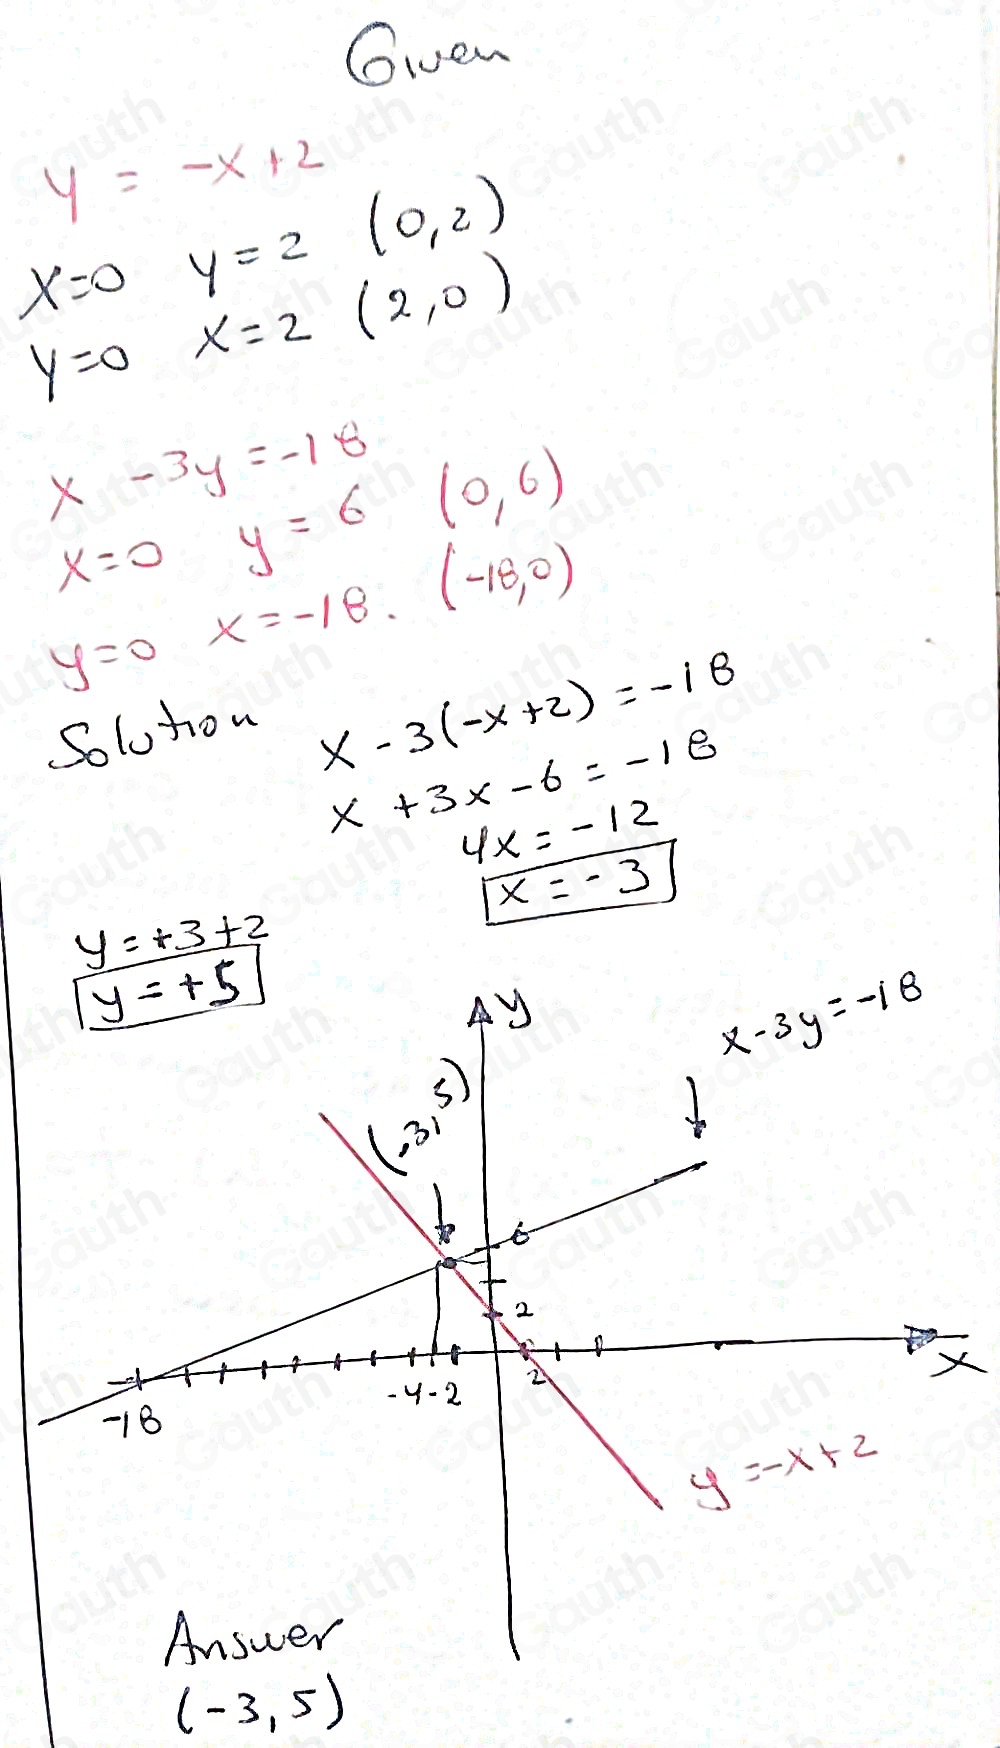 Given
y = -x+2
x=0 y=2 (0,2)
y=0 x=2 (2,0)
x -3y=-18
x=0 y=6 (0,6)
y=0 x=-18. (-18,0)
Solution
x-3(-x+2)=-18
x +3x-6=-18
4x=-12
x=-3
y=+3+2
y=+5
y
x-3y=-18
(-3, 5)
6
2
-18
-4-2
2
x
y=-x+2
Answer
(-3,5)
Gauth